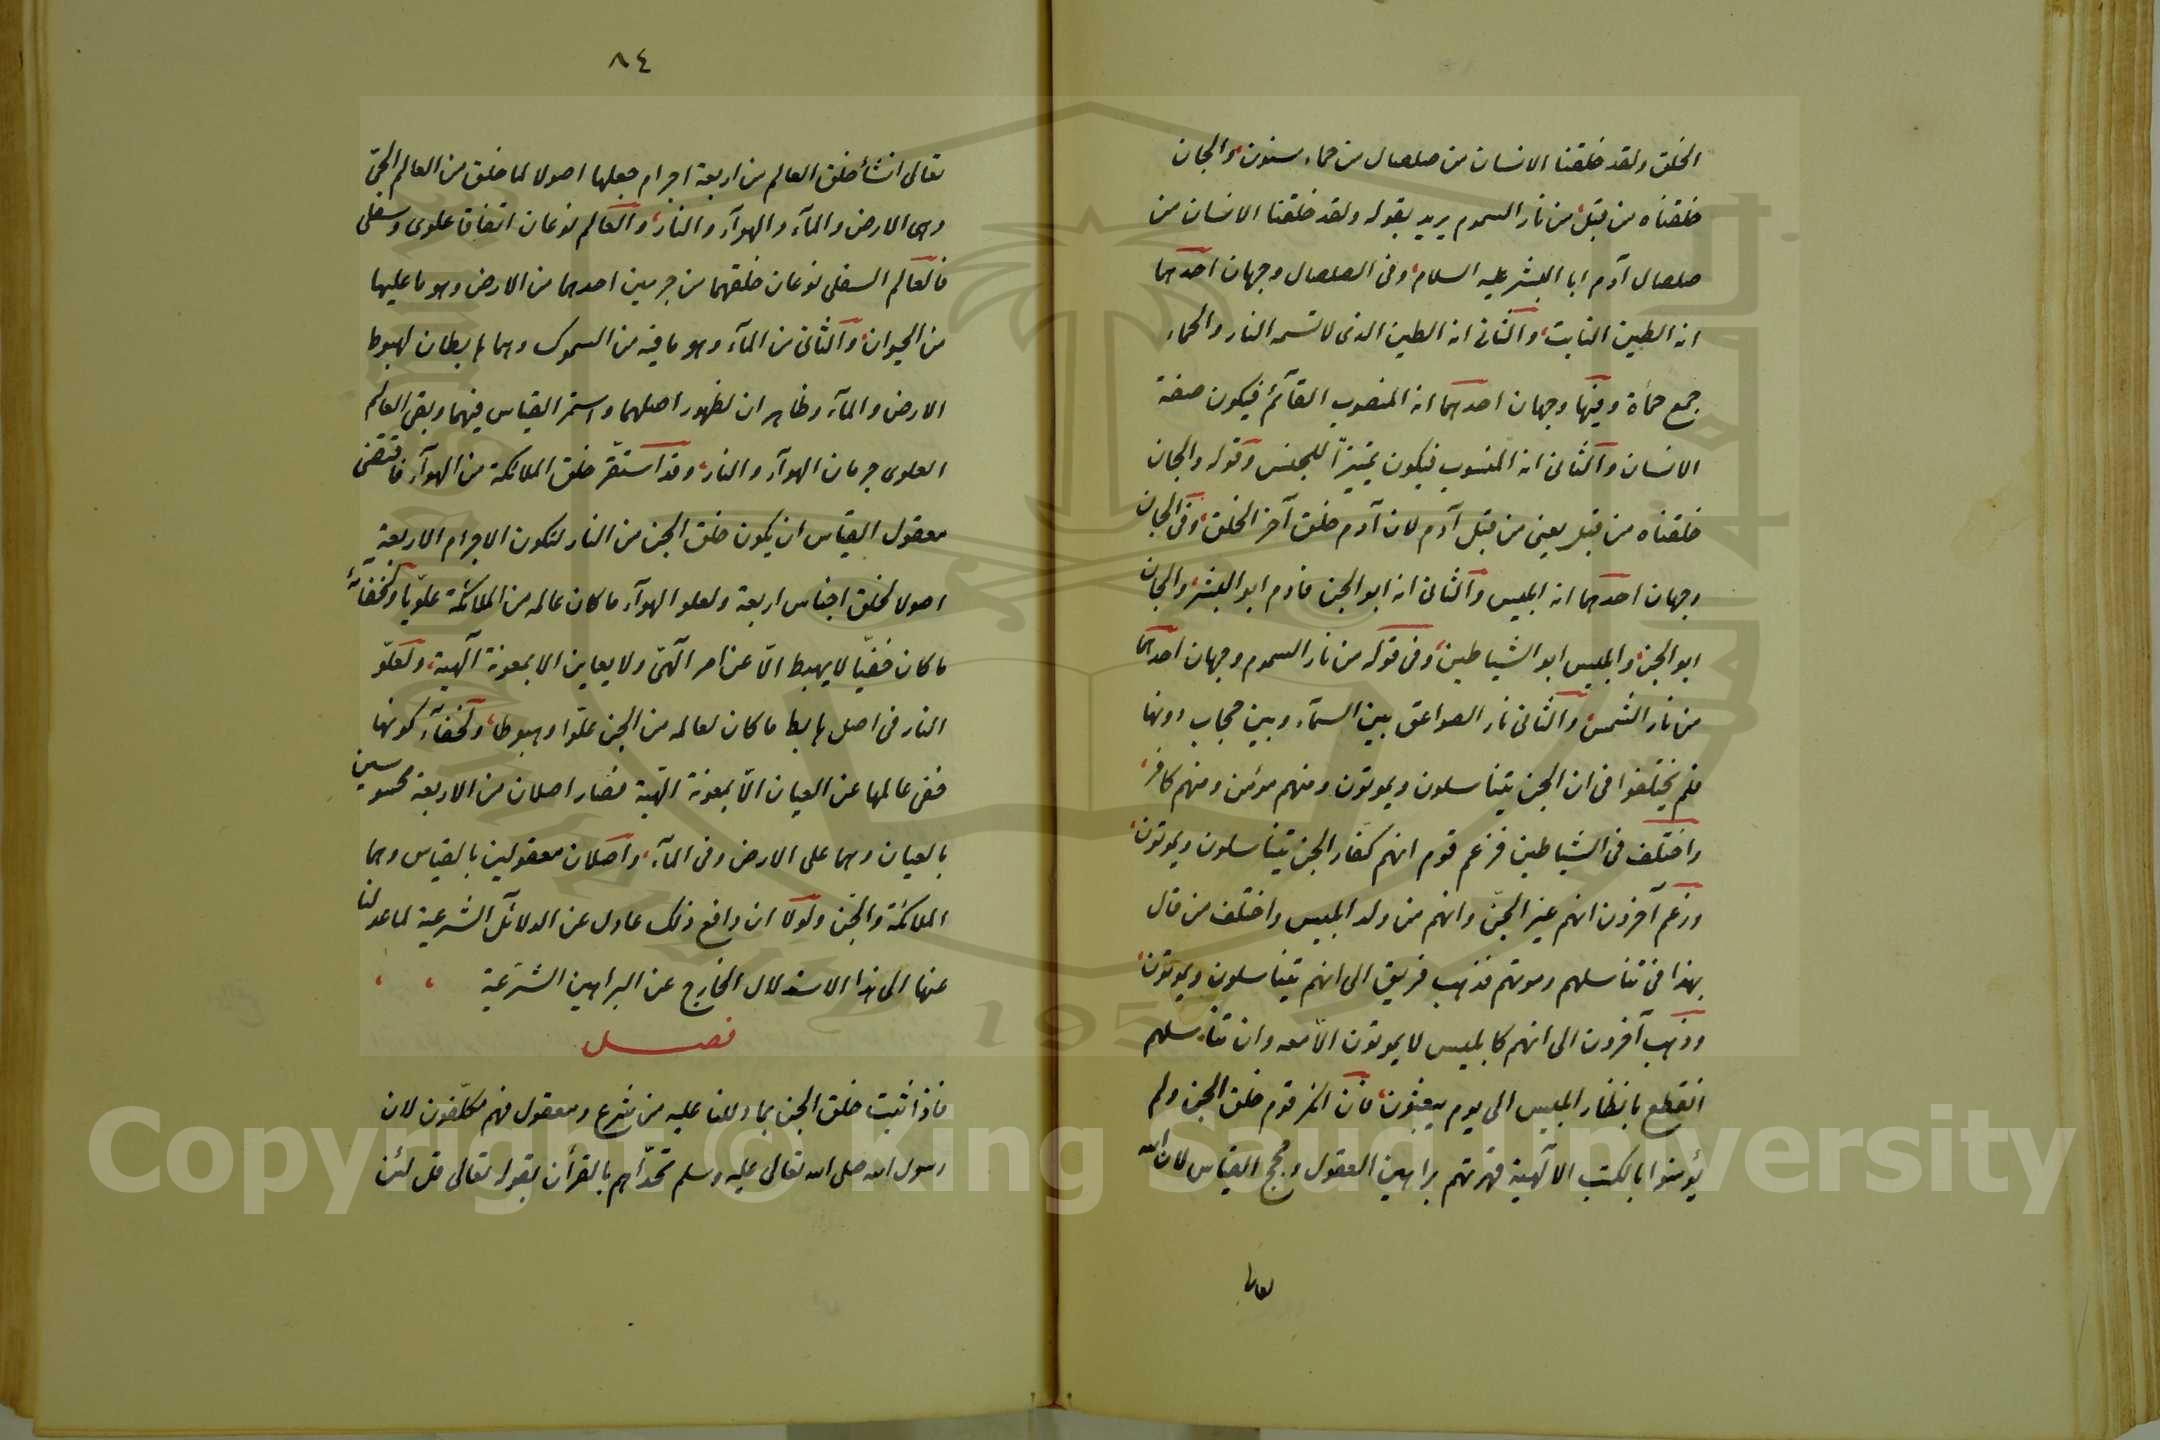 الخلق ولقد خلقنا الانسان من صلصال من حماء مسنون والجان
خلقناه من قبل من نار السموم يريد بقوله ولقد خلقنا الانسان من
صلصال آدم ابا البشر عليه السلام وفى الصلصال وجهان احدهما
انه الطين النابت والثانى انه الطين الذى لا تسه النار والحماء
جمع حمأة وفيها وجهان احدهما انه المنصوب القآئم فيكون صفة
الانسان والثانى انه المنسوب فيكون تميزاً للجنس وقوله والجان
خلقناه من قبل يعنى من قبل آدم لان آدم خلق آخر الخلق وفى الجان
وجهان احدهما انه ابليس والثانى انه ابو الجن فادم ابو البشر والجان
ابو الجن وابليس ابو الشياطين وفى قوله من نار السموم وجهان احدهما
من نار الشمس والثانى نار الصواعق بين السمآء وبين حجاب دونها
فلم يختلفوا فى ان الجن يتناسلون ويموتون ومنهم مؤمن ومنهم كافر
واختلف فى الشياطين فزعم قوم انهم كفار الجن يتناسلون ويموتون
وزعم آخرون انهم غير الجن وانهم من ولد ابليس واختلف من قال
بهذا فى تناسلهم وموتهم فذهب فريق الى انهم يتناسلون ويموتون
وذهب آخرون الى انهم كابليس لا يموتون الا معه وان تناسلهم
انقطع بانظار ابليس الى يوم يبعثون فان انكر قوم خلق الجن ولم
يؤمنوا بالكتب الآلهية قهرتهم براهين العقول وحجج القياس لان الله
تعالى
٨٤
تعالى انشأ خلق العالم من اربعة اجرام جعلها اصولا لما خلق من العالم الحىّ
وهى الارض والمآء والهوآء والنار والعالم نوعان اتفاقا علوى وسفلى
فالعالم السفلى نوعان خلقهما من جرمين احدهما من الارض وهو ما عليها
من الحيوان والثانى من المآء وهو ما فيه من السموك وهما هابطان لهبوط
الارض والمآء وظاهران لظهور اصلهما واستمر القياس فيهما وبقى العالم
العلوى جرمان الهوآء والنار وقد استقرّ خلق الملائكة من الهوآء فاقتضى
معقول القياس ان يكون خلق الجن من النار لتكون الاجرام الاربعة
اصولا لخلق اجناس اربعة ولعلو الهوآء ما كان عالمه من الملائكة علوّيا ولخفآئه
ما كان خفيّا لا يهبط الّا عن امر آلهىّ ولا يعاين الا بمعونة آلهية ولعلّو
النار فى اصل هابط ما كان لعالمه من الجن علوّا وهبوطا ولخفآء كونها
خفى عالمها عن العيان الّا بمعونة الّهية فصار اصلان من الاربعة محسوسين
بالعيان وهما على الارض وفى المآء واصلان معقولين بالقياس وهما
الملائكة والجن ولولا ان دافع ذلك عادل عن الدلائل الشرعية لما عدلنا
عنها الى هذا الاستدلال الخارج عن البراهين الشرعية
فصل
فاذا ثبت خلق الجن بما دللنا عليه من شرع ومعقول فهم مكلّفون لان
رسول الله صلى الله تعالى عليه وسلم تحدّاهم بالقرأن بقوله تعالى قل لئن
Copyright © King Saud University
1957